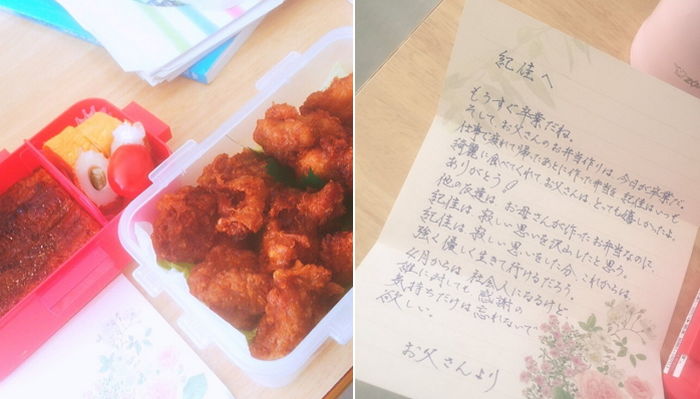 紀佳へ
もうすぐ卒業だね。
そして、お父さんのお弁当作りは、今日が卒業だ。
仕事で疲れて帰ったあとに作った弁当、紀佳はいつも
綺麗に食べてくれてお父さんは、とっても嬉しかったよ。
ありがとう!
他の友達は、お母さんが作ったお弁当なのに、
紀佳は寂しい思いを沢山したと思う。
紀佳は寂しい思いをした分、これからは、
強く優しく生きて行けるだろう。
4月からは、社会人になるけど
誰に対しても感謝の
気持ちだけは忘れないで
欲しい。
お父さんより